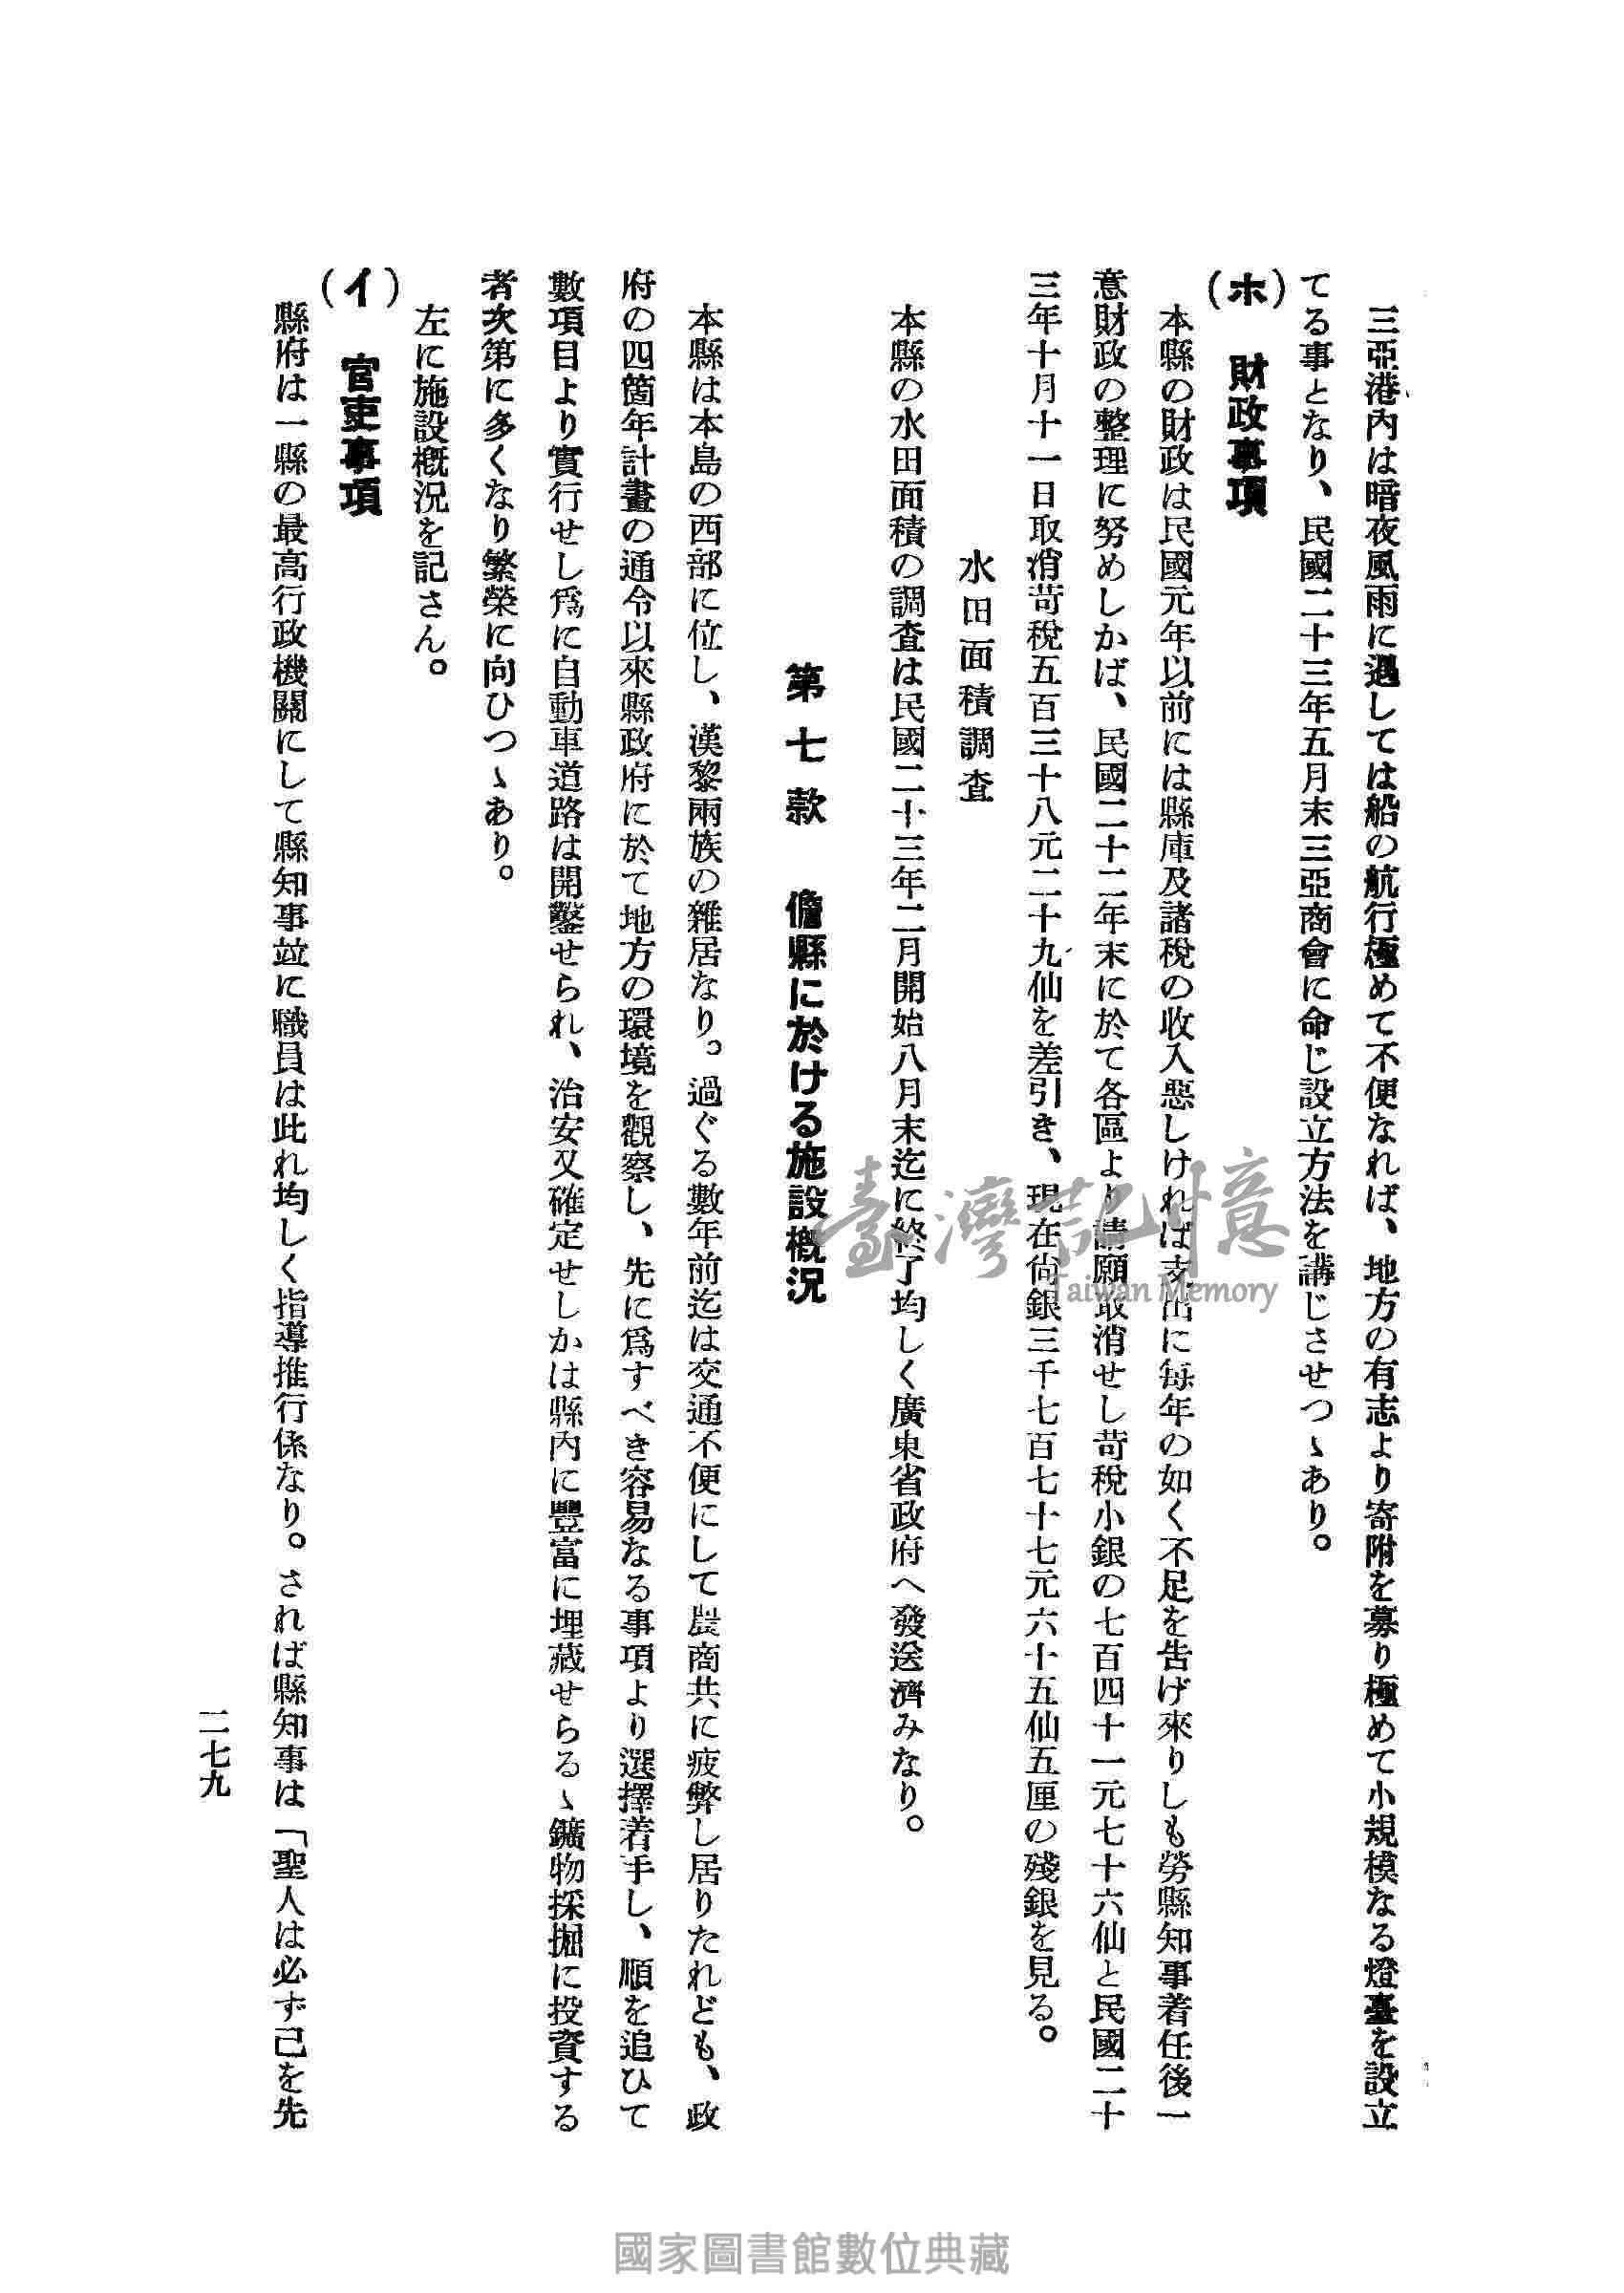 三亞港內は暗夜風雨に遇しては船の航行極めて不便なれば、地方の有志より寄附を募り極めて小規模なる燈臺を設立
てる事となり、民國二十三年五月末三亞商會に命じ設立方法を講じさせつゝあり。
(ホ) 財政事項
本縣の財政は民國元年以前には縣庫及諸稅の收入惡しければ支出に每年の如く不足を吿げ來りしも勞縣知事着任後一
意財政の整理に努めしかば、民國二十二年末に於て各區より請願取消せし苛稅小銀の七百四十一元七十六仙と民國二十
三年十月十一日取消苛稅五百三十八元二十九仙を差引き、現在尙銀三千七百七十七元六十五仙五厘の殘銀を見る。
水田面積調査
本縣の水田面積の調査は民國二十三年二月開始八月末迄に終了均しく廣東省政府へ發送濟みなり。
第七款 儋縣に於ける施設槪況
本縣は本島の西部に位し、漢黎兩族の雜居なり。過ぐる數年前迄は交通不便にして農商共に疲弊し居りたれども、政
府の四箇年計畫の通令以來縣政府に於て地方の環境を觀察し、先に爲すべき容易なる事項より選擇着手し、順を追ひて
數項目より實行せし爲に自動車道路は開鑿せられ、治安又確定せしかは縣內に豐富に埋藏せらるゝ鑛物採掘に投資する
者次第に多くなり繁榮に向ひつゝあり。
左に施設槪況を記さん。
(イ) 官吏事項
縣府は一縣の最高行政機關にして縣知事竝に職員は此れ均しく指導推行係なり。されば縣知事は「聖人は必ず己を先
二七九
臺灣記憶
Taiwan Memory
國家圖書館數位典藏